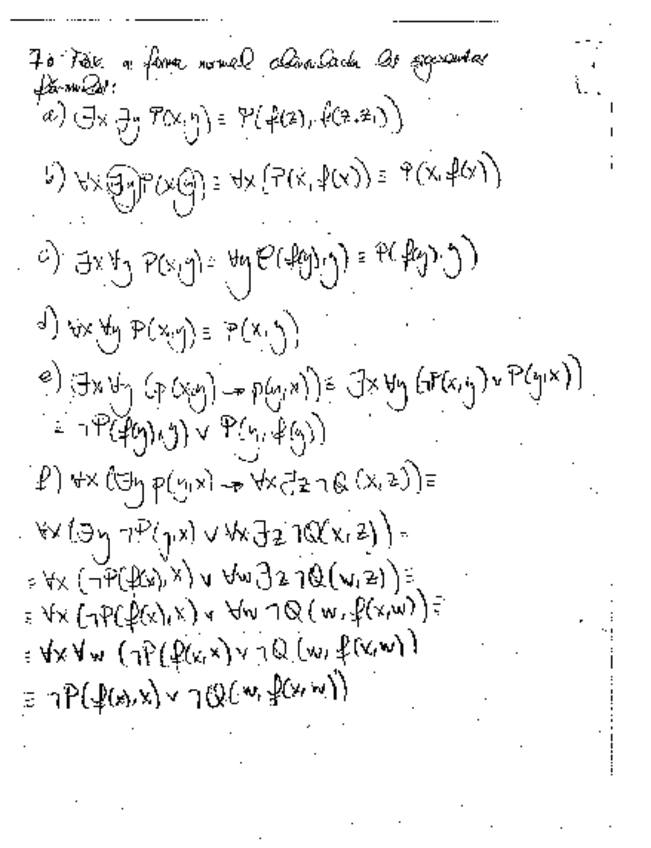 7º Pasar a forma normal clausulada las siguientes
fórmulas:
a) ∃x ∃y P(x,y) ≡ P(f(z), f(z,z₁))
b) ∀x ∃y P(x,y) ≡ ∀x (P(x, f(x)) ≡ P(x, f(x))
c) ∃x ∀y P(x,y) ≡ ∀y P(f(y),y) ≡ P(f(y),y)
d) ∀x ∀y P(x,y) ≡ P(x,y)
e) ∃x ∀y (p(x,y) → p(y,x)) ≡ ∃x ∀y (¬P(x,y) ∨ P(y,x))
≡ ¬P(f(y),y) ∨ P(y, f(y))
f) ∀x (∃y p(y,x) → ∀x ∃z ¬Q(x,z)) ≡
∀x (∃y ¬P(y,x) ∨ ∀x ∃z ¬Q(x,z)) ≡
≡ ∀x (¬P(f(x),x) ∨ ∀w ∃z ¬Q(w,z)) ≡
≡ ∀x (¬P(f(x),x) ∨ ∀w ¬Q(w, f(x,w)) ≡
≡ ∀x ∀w (¬P(f(x,x) ∨ ¬Q(w, f(x,w))
≡ ¬P(f(x),x) ∨ ¬Q(w, f(x,w))